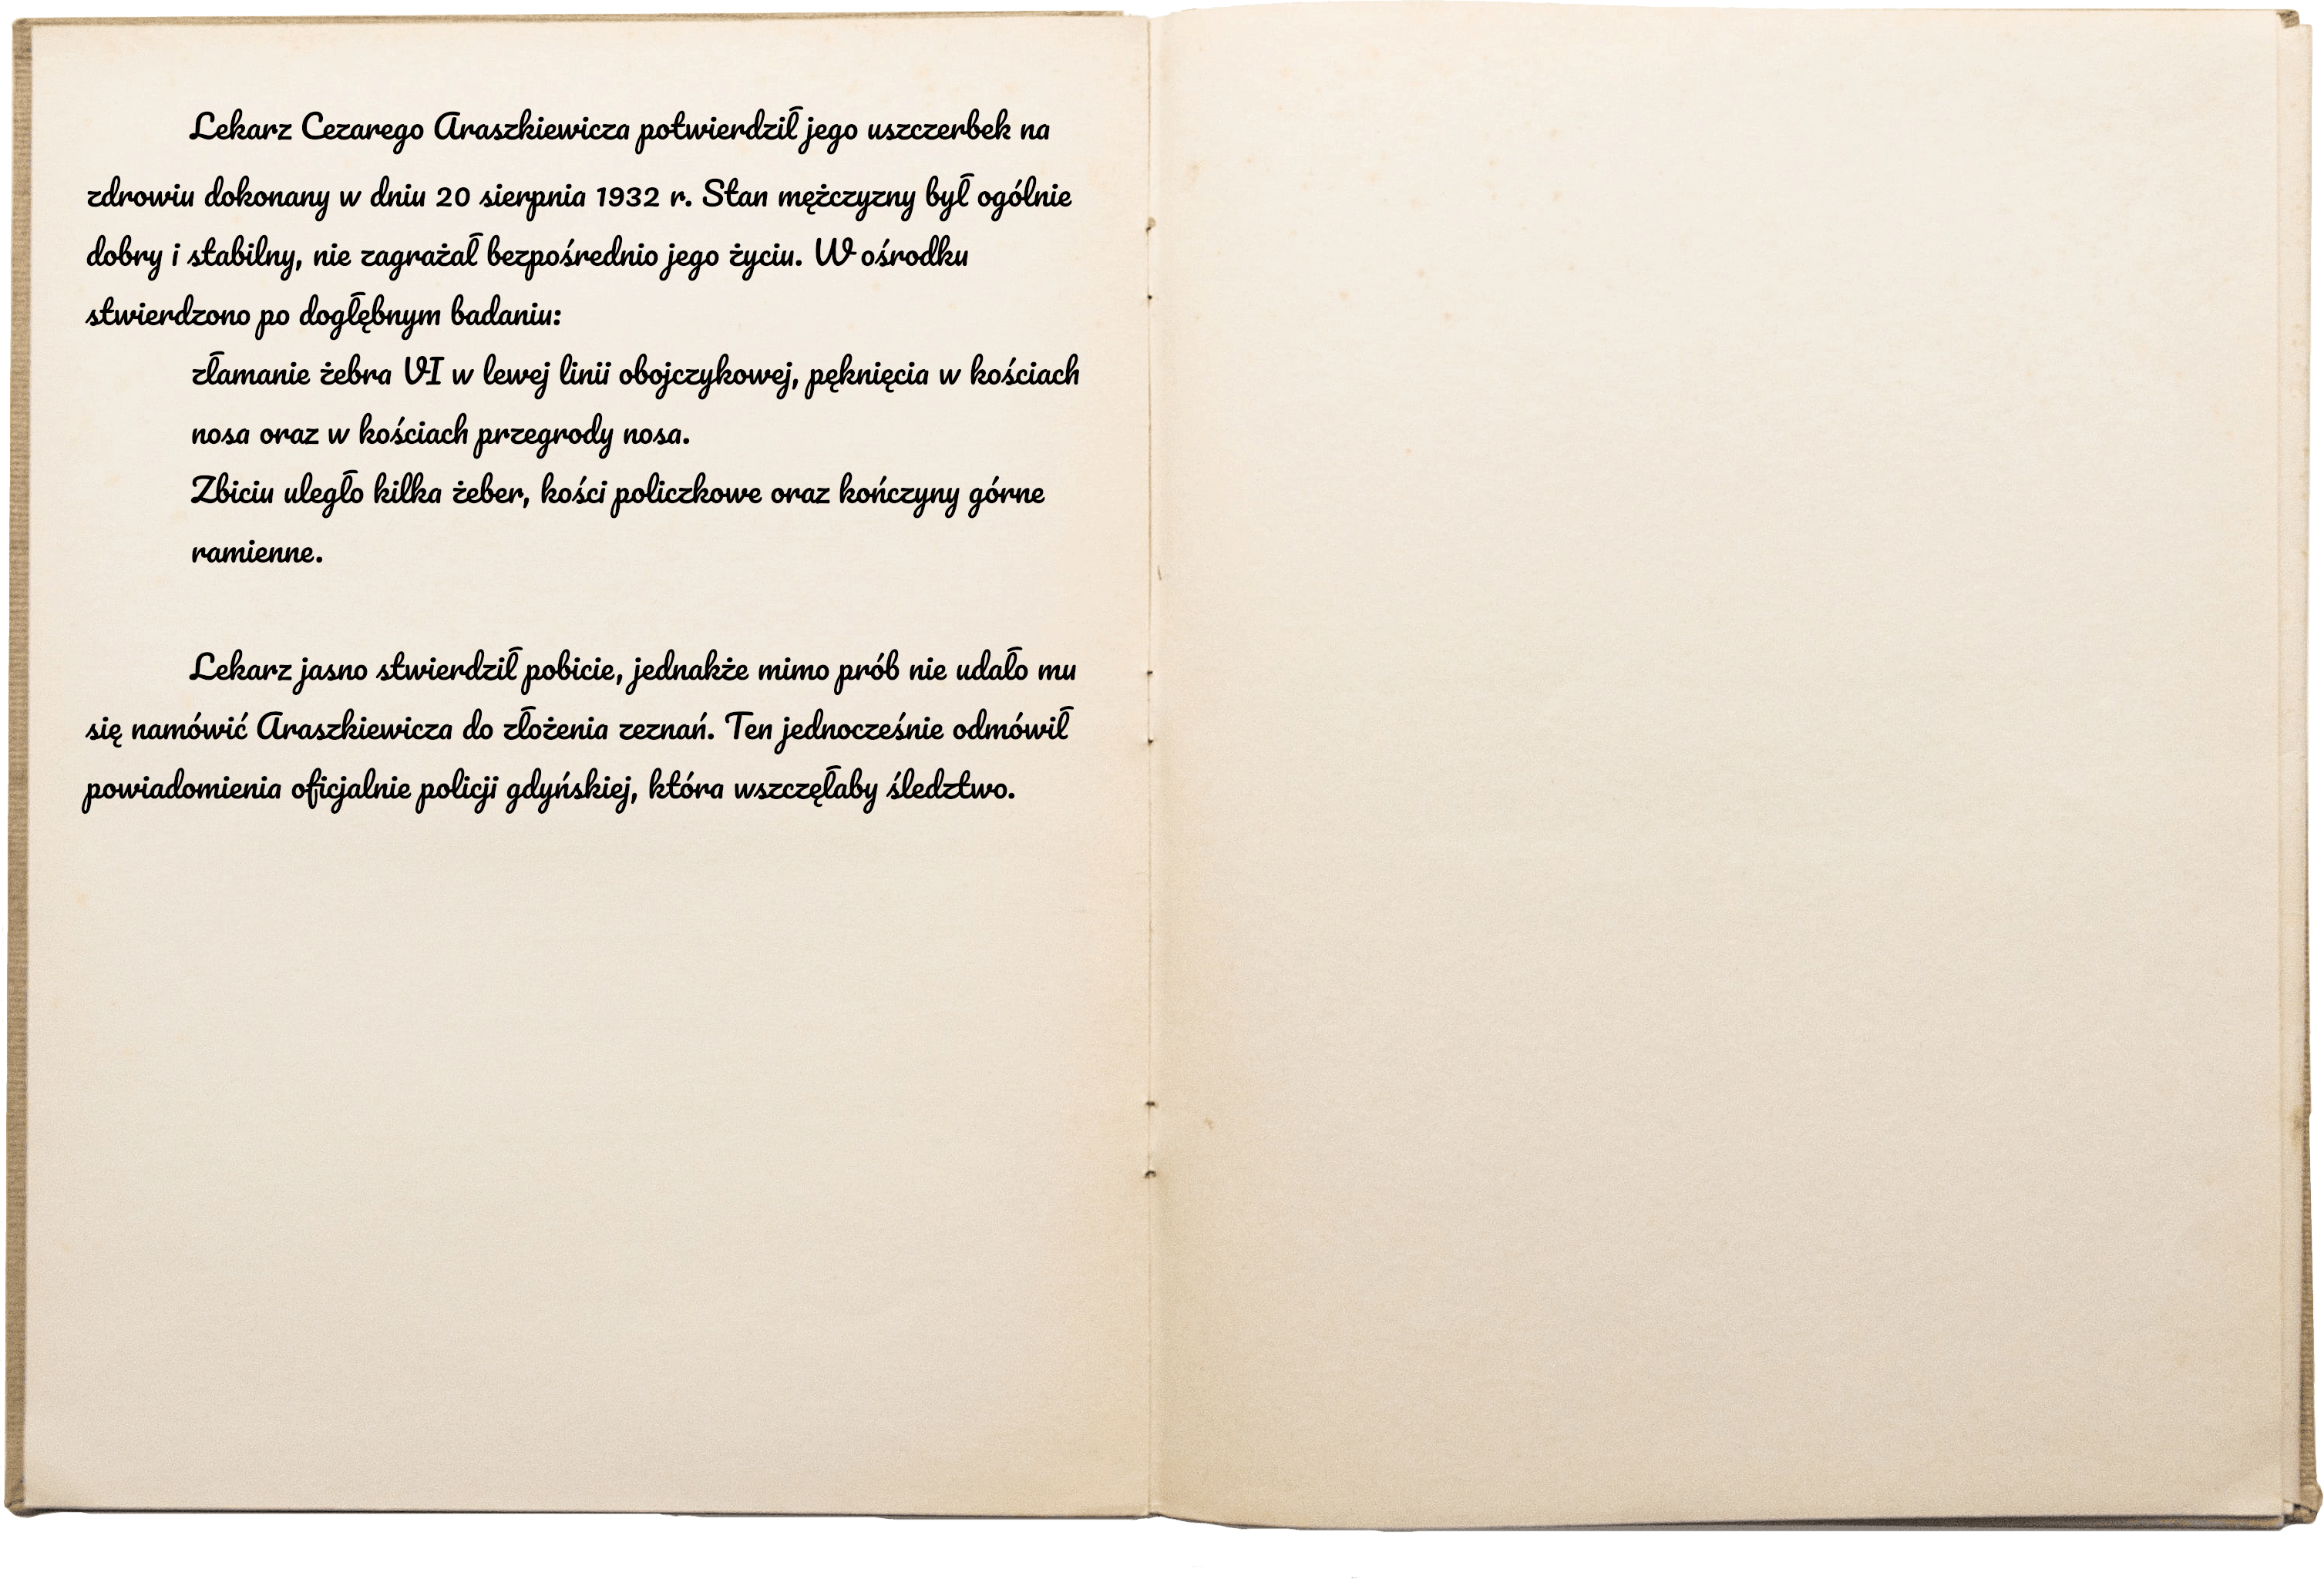 Lekarz Cezarego Araszkiewicza potwierdził jego uszczerbek na
zdrowiu dokonany w dniu 20 sierpnia 1932 r. Stan mężczyzny był ogólnie
dobry i stabilny, nie zagrażał bezpośrednio jego życiu. W ośrodku
stwierdzono po dogłębnym badaniu:
złamanie żebra VI w lewej linii obojczykowej, pęknięcia w kościach
nosa oraz w kościach przegrody nosa.
Zbiciu uległo kilka żeber, kości policzkowe oraz kończyny górne
ramienne.
Lekarz jasno stwierdził pobicie, jednakże mimo prób nie udało mu
się namówić Araszkiewicza do złożenia zeznań. Ten jednocześnie odmówił
powiadomienia oficjalnie policji gdyńskiej, która wszczęłaby śledztwo.